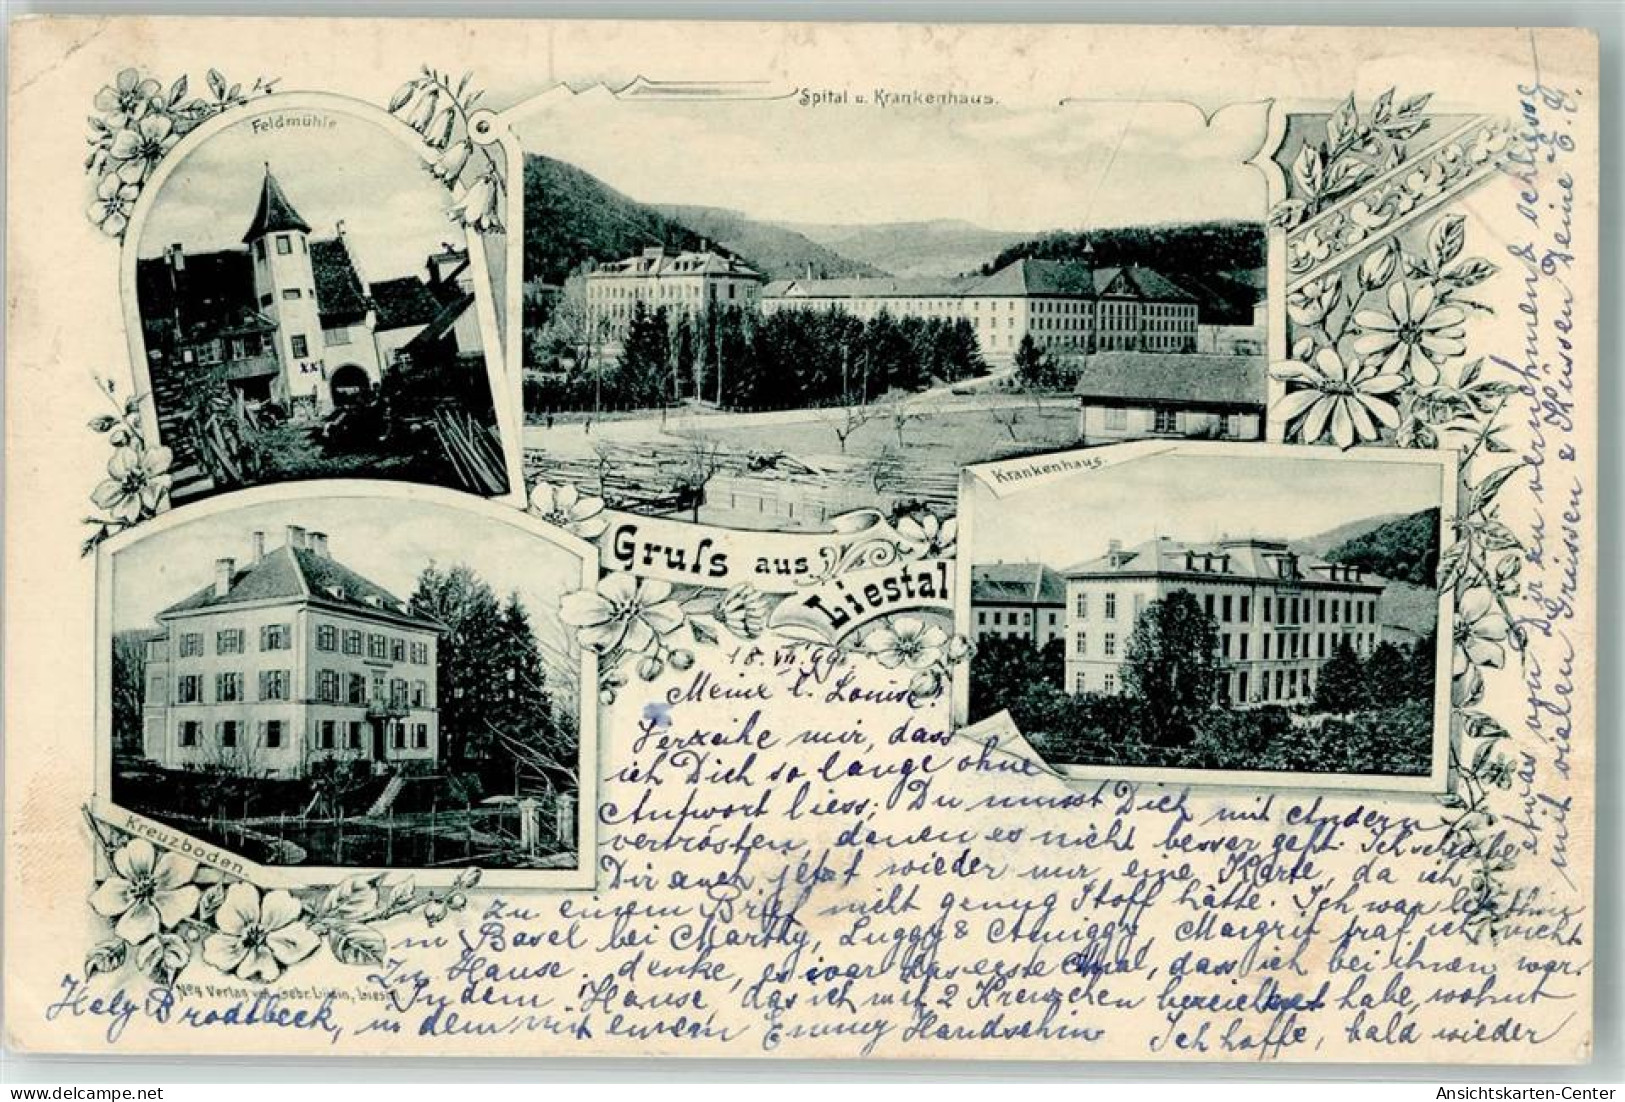 Feldmühle
Spital u. Krankenhaus.
Krankenhaus.
Gruſs aus
Liestal
Kreuzboden.
No 4 Verlag von Gebr. Lüdin, Liestal.
18. VII 99.
Meine l. Louise!
Verzeihe mir, dass
ich Dich so lange ohne
Antwort liess; Du musst Dich mit Andern
vertrösten, denen es nicht besser geht. Ich schreibe
Dir auch jetzt wieder nur eine Karte, da ich
zu einem Brief nicht genug Stoff hätte. Ich war letzthin
in Basel bei Marthy, Luggy & Anniggy, Margrit traf ich nicht
zu Hause; denke, es war das erste Mal, dass ich bei ihnen war.
In dem Hause, das ich mit 2 Kreuzchen bezeichnet habe, wohnt
Hely Brodtbeck, in dem mit einem Emmy Handschin
Ich hoffe, bald wieder
etwas von Dir zu vernehmen & schliesse
mit vielen Grüssen & Küssen Deine E. G.
xx
Ansichtskarten-Center